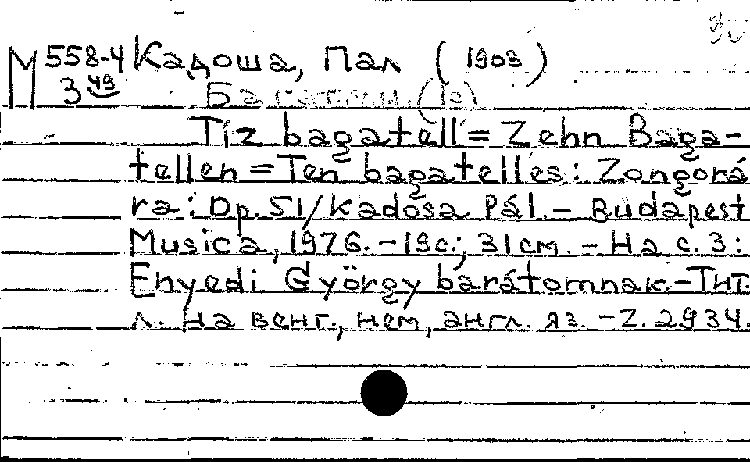 М 558-4 Кадоша, Пал (1903)
3 49 Багатели (10)
Tíz bagatell = Zehn Baga-
tellen = Ten bagatelles: Zongorá
ra: Op. 51/Kadosa Pál. - Budapest
Musica, 1976. - 19с.; 31см. - На с. 3:
Enyedi György barátomnak. - Тит.
л. на венг., нем, англ. яз. - Z. 2934.